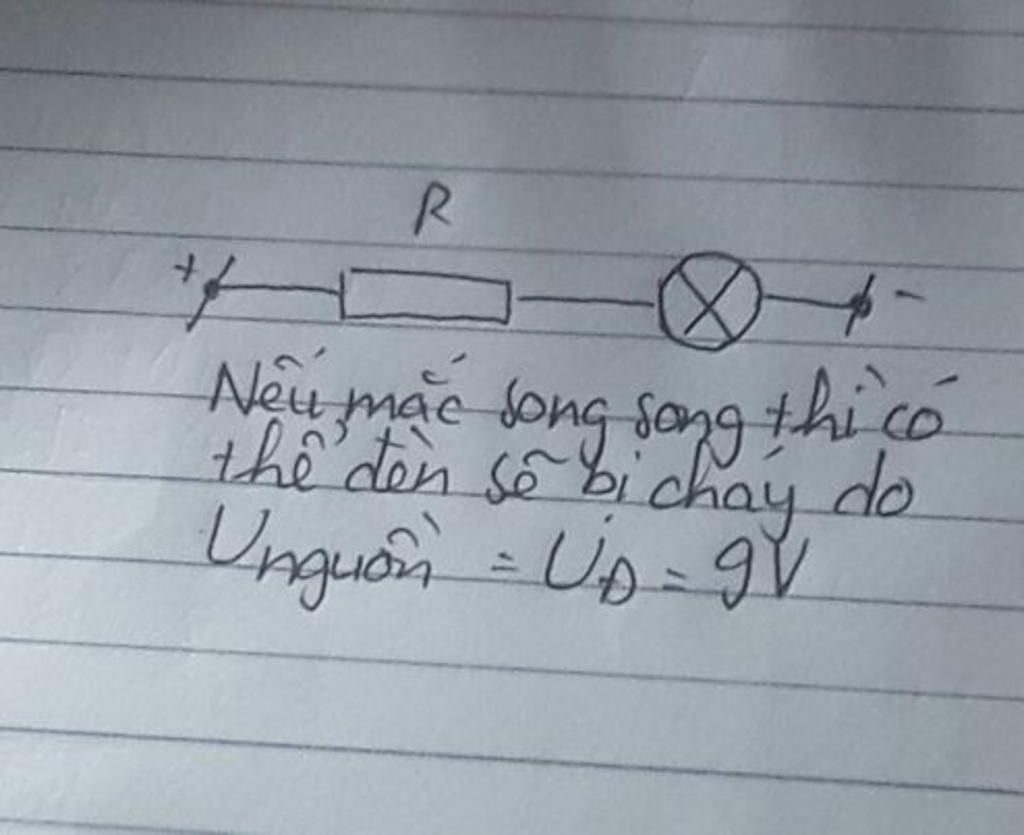 R
+ -
Nếu mắc song song thì có
thể đèn sẽ bị cháy do
Unguồn = UĐ = 9V